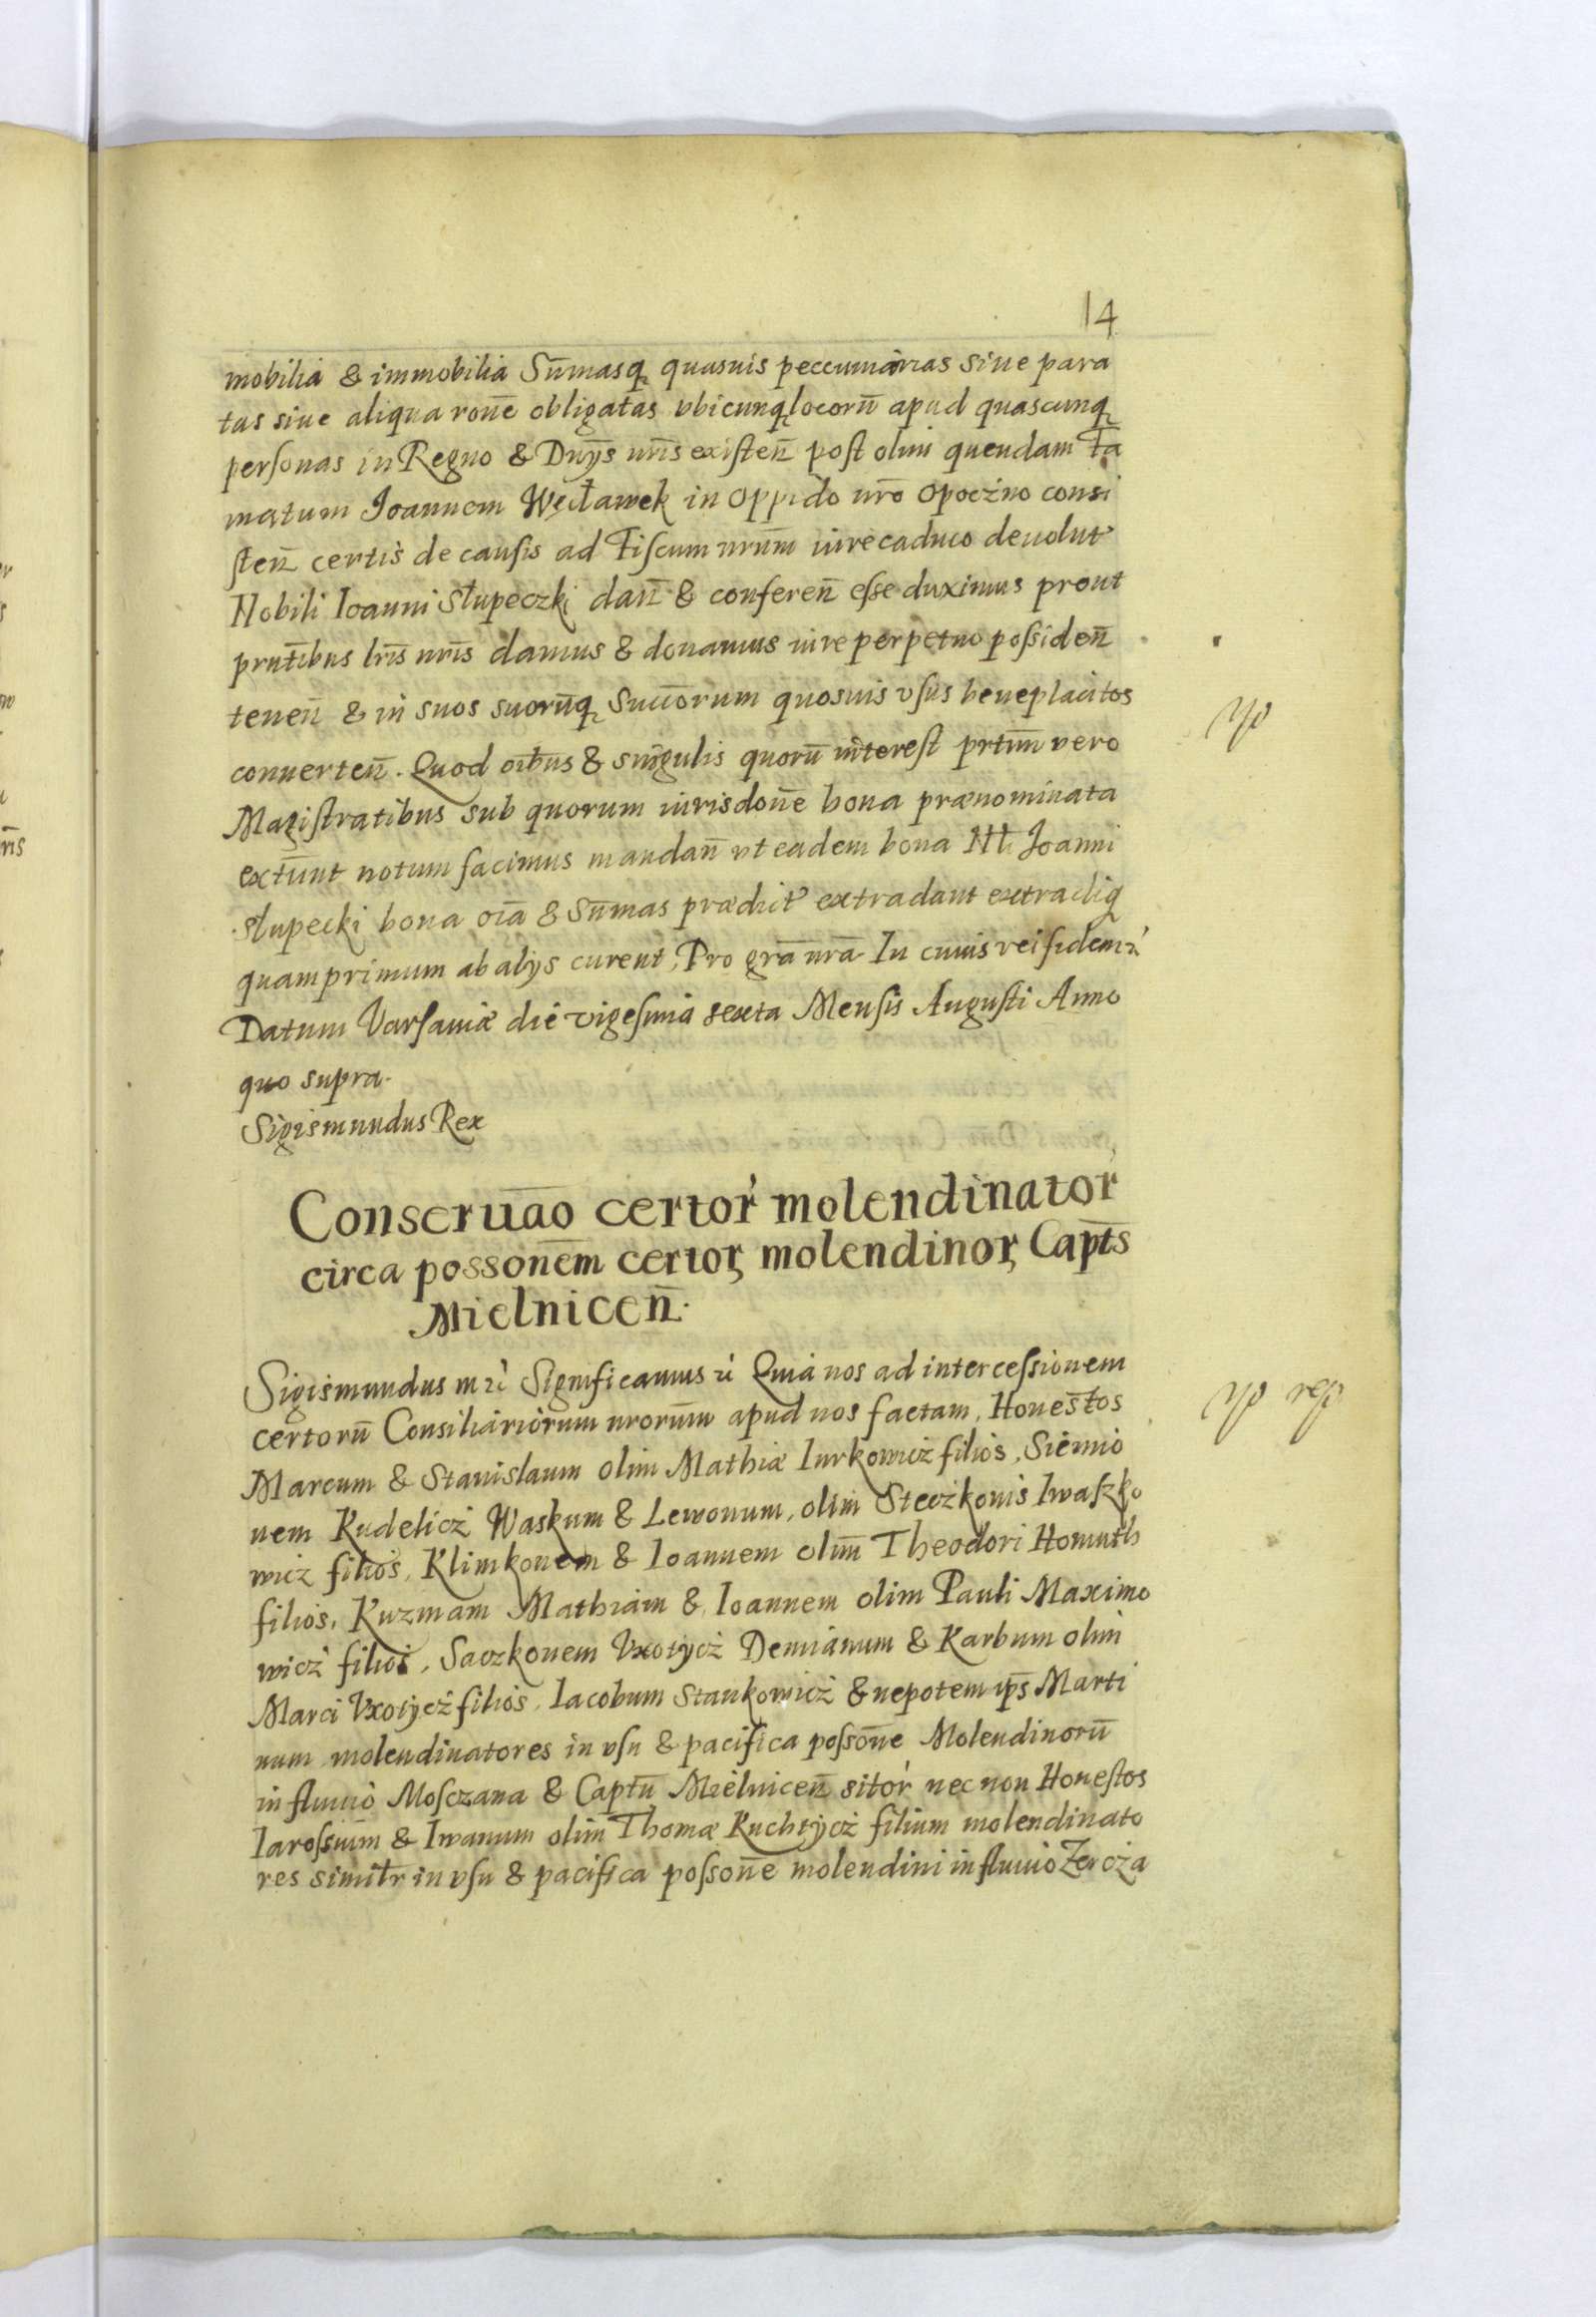 14
mobilia & immobilia Sūmasq quasuis peccuniarias siue para
tas siue aliqua rone obligatas vbicunq locorū apud quascunq
personas in Regno & Dnys nris existen post olim quendam Fa
matum Ioannem Węcławek in oppido nro Opoczno consi
sten certis de causis ad Fiscum nrum iure caduco deuolut
Nobili Ioanni Słupeczki dan & conferen esse duximus prout
prntibus lris nris damus & donamus iure perpetuo possiden
tenen & in suos suorūq succorum quosuis vsus beneplacitos
conuerten. Quod oibus & singulis quorū interest prtim vero
Magistratibus sub quorum iurisdone bona prænominata
extunt notum facimus mandan vt eadem bona Nli Ioanni
Słupecki bona oia & Sūmas prædict extradant extradiq
quamprimum ab alys curent, Pro gra nra In cuius rei fidem
Datum Varsauiæ die vigesima sexta Mensis Augusti Anno
quo supra.
Sigismundus Rex
Conseruao certor molendinator
circa possonem certor molendinor Capts
Mielnicen.
Sigismundus Significamus Quia nos ad intercessionem
certorū Consiliariorum nrorum apud nos factam, Honestos
Marcum & Stanislaum olim Mathiæ Iurkowicz filios, Siemio
nem Kudelicz Waskum & Lewonum, olim Steczkonis Iwaszko
wicz filios, Klimkonem & Ioannem olim Theodori Homuth
filios, Kuzmam Mathiam & Ioannem olim Pauli Maximo
wicz filios, Saczkonem Vxotycz Demianum & Karbum olim
Marci Vxotycz filios, Iacobum Stankowicz & nepotem ips Marti
num molendinatores in vsu & pacifica possone Molendinorū
in fluuio Mosczana & Captu Mielnicen sitor nec non Honestos
Iarossium & Iwanum olim Thomæ Kuchtycz filium molendinato
res similr in vsu & pacifica possone molendini in fluuio Zercza